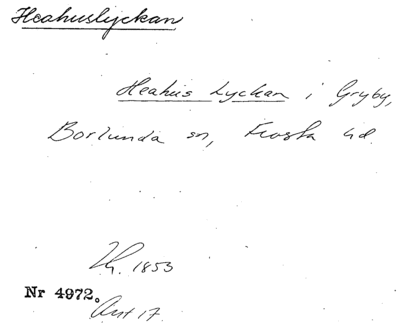 Heahuslyckan
Heahus Lyckan i Gryby,
Borlunda sn, Frosta hd.
1853
Nr 4972.
Ant 17.